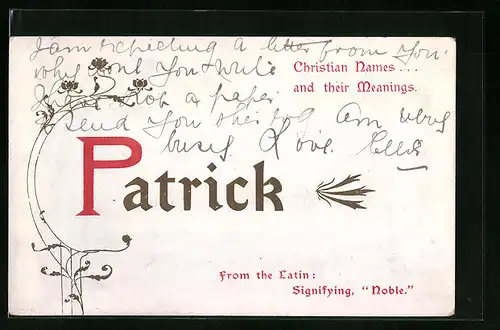 I am expecting a letter from you.
why dont you write
a paper
send you
am very
busy Love
Christian Names...
and their Meanings.
Patrick
From the Latin:
Signifying, "Noble."